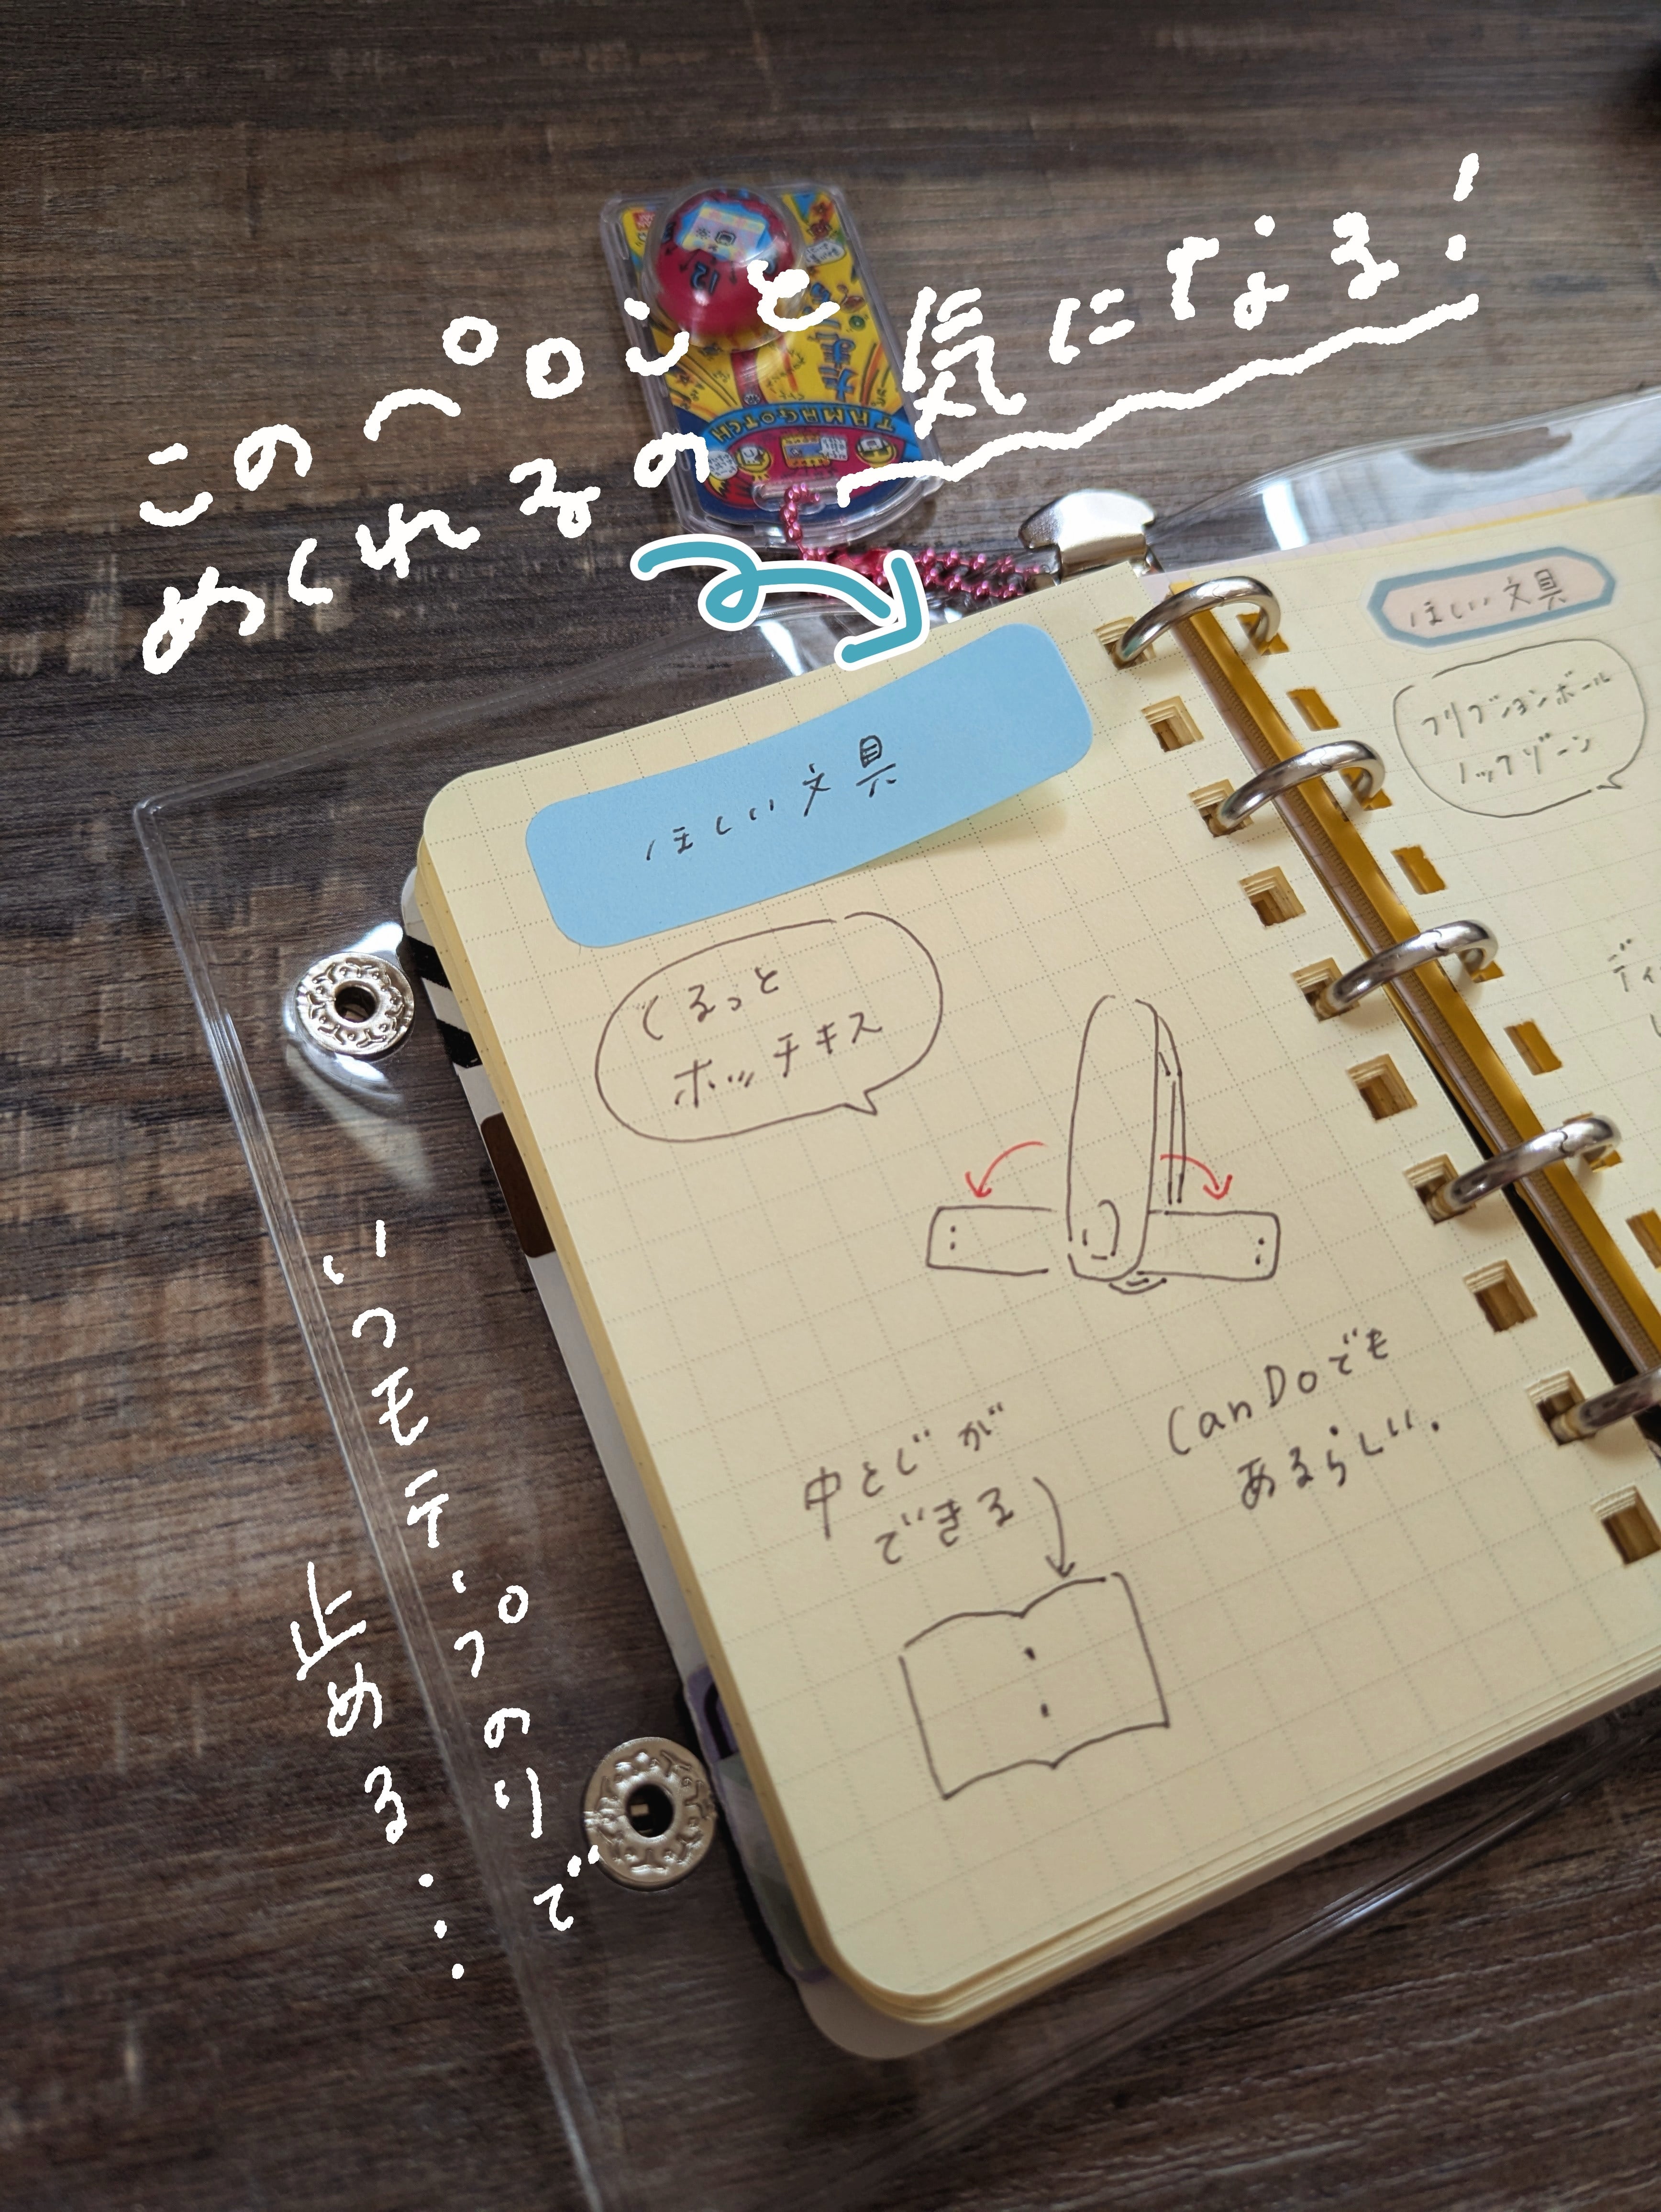 このペロンと
めくれるの
気になる!
いつモテープのりで
止める…
TAMAGOTCH
ほしい文具
くるっと
ホッチキス
中とじが
できる
CanDoでも
あるらしい.
ほしい文具
フリクションボール
ノックゾーン